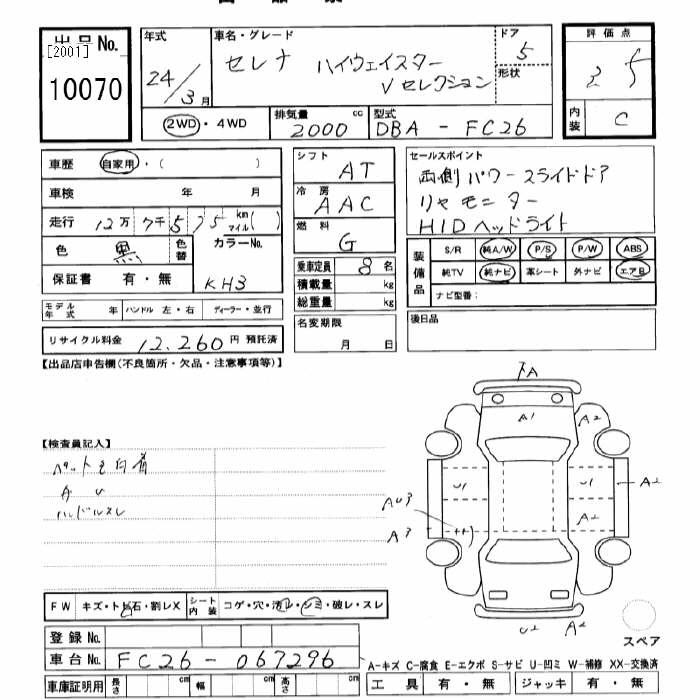 出品No.
[2001]
10070
年式
24/3月
車名・グレード
セレナ ハイウェイスター
Vセレクション
ドア
5
形状
2WD・4WD
排気量 cc
2000
型式
DBA-FC26
評価点
3.5
内装
C
車歴 自家用・( )
車検 年 月
走行 12万7千575 km マイル( )
色 黒 色替
カラーNo.
KH3
保証書 有・無
モデル年式 年 ハンドル 左・右 ディーラー・並行
リサイクル料金 12,260 円 預託済
シフト
AT
冷房
AAC
燃料
G
乗車定員 8 名
積載量 kg
総重量 kg
名変期限
月 日
セールスポイント
両側パワースライドドア
リヤモニター
HIDヘッドライト
装備品
S/R 純A/W P/S P/W ABS
純TV 純ナビ 革シート 外ナビ エアB
ナビ型番:
後日品
【出品店申告欄(不良箇所・欠品・注意事項等)】
【検査員記入】
ハンドルスレ
FW キズ・トビ石・割レX
シート内装 コゲ・穴・汚レ・シミ・破レ・スレ
登録No.
車台No. FC26-067296
車庫証明用 長さ cm 幅 cm 高さ cm
A
A1
A2
U1
U1
A2
A2
AU3
A3
U2
A2
スペア
A-キズ C-腐食 E-エクボ S-サビ U-凹ミ W-補修 XX-交換済
工具 有・無 ジャッキ 有・無